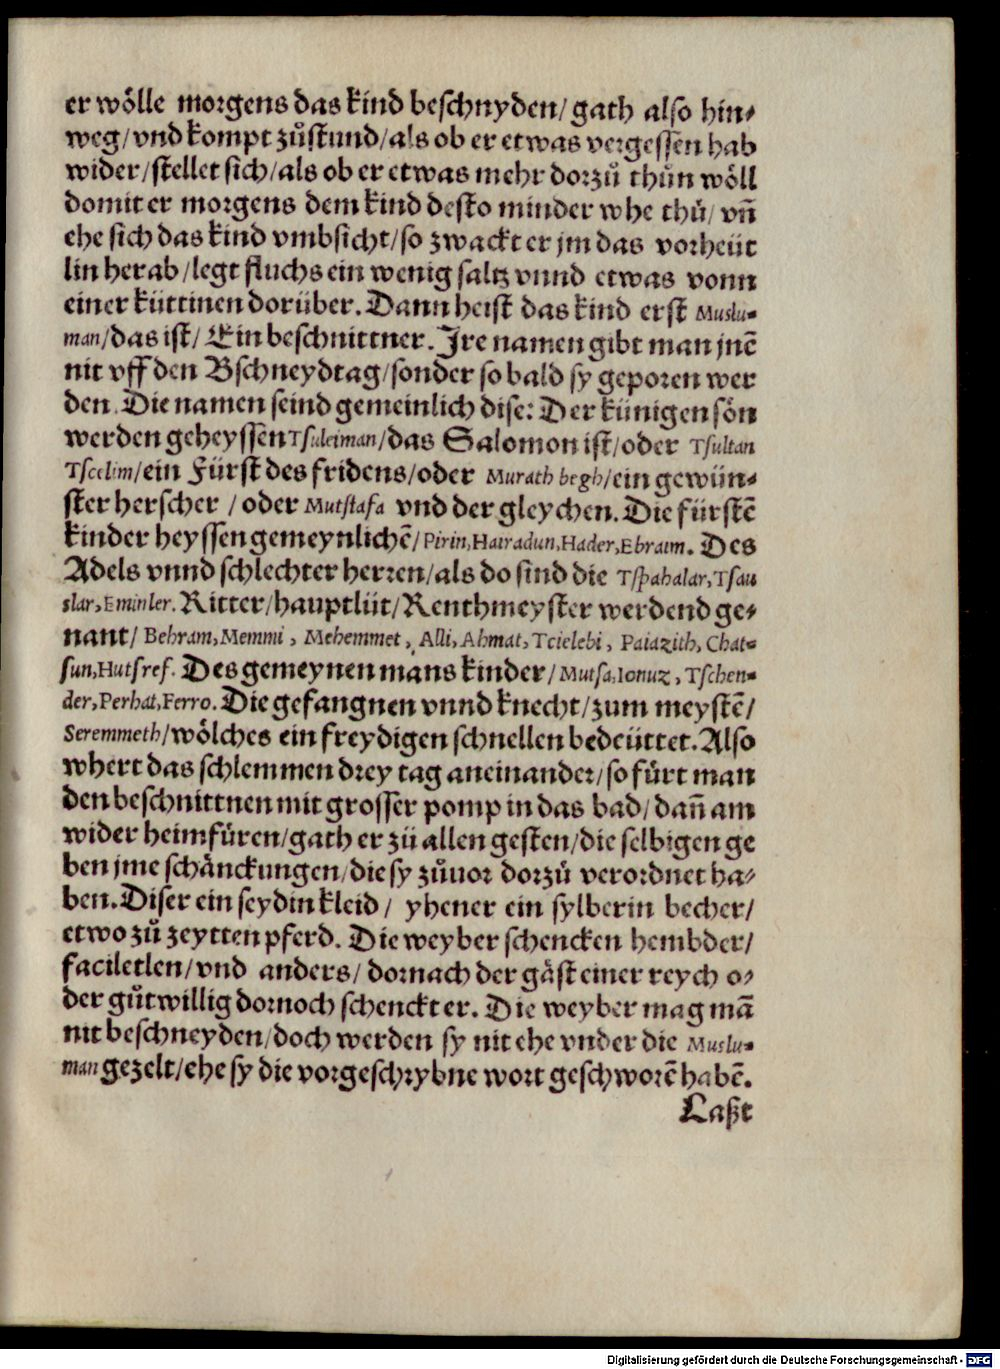 er wölle morgens das kind beschnyden/ gath also hin⸗
weg/ vnd kompt zůstund/ als ob er etwas vergessen hab
wider/ stellet sich/ als ob er etwas mehr dorzů thůn wöll
domit er morgens dem kind desto minder whe thů/ vñ
ehe sich das kind vmbsicht/ so zwackt er jm das vorheüt
lin herab/ legt fluchs ein wenig saltz vnnd etwas vonn
einer küttinen dorüber. Dann heist das kind erst Muslu⸗
man/ das ist/ Ein beschnittner. Ire namen gibt man jnē
nit vff den Bschneydtag/ sonder so bald sy geporen wer
den. Die namen seind gemeinlich dise: Der künigen sön
werden geheyssen Tsuleiman/ das Salomon ist/ oder Tsultan
Tseelim/ ein Fürst des fridens/ oder Murath begh/ ein gewün⸗
ster herscher / oder Mutstafa vnd der gleychen. Die fürstē
kinder heyssen gemeynlichē/ Pirin, Hairadun, Hader, Ebraim. Des
Adels vnnd schlechter herren/ als do sind die Tspahalar, Tsau
slar, Eminler. Ritter/ hauptlüt/ Renthmeyster werdend ge⸗
nant/ Behram, Memmi, Mehemmet, Alli, Ahmat, Tcielebi, Paiazith, Chat⸗
sun, Hutsref. Des gemeynen mans kinder/ Mutsa, Ionuz, Tschen⸗
der, Perhat, Ferro. Die gefangnen vnnd knecht/ zum meystē/
Seremmeth/ wölches ein freydigen schnellen bedeüttet. Also
whert das schlemmen drey tag aneinander/ so fürt man
den beschnittnen mit grosser pomp in das bad/ dañ am
wider heimfüren/ gath er zü allen gesten/ die selbigen ge
ben jme schänckungen/ die sy zůuor dorzů verordnet ha⸗
ben. Diser ein seydin kleid/ yhener ein sylberin becher/
etwo zů zeytten pferd. Die weyber schencken hembder/
faciletlen/ vnd anders/ dornach der gäst einer reych o⸗
der gůtwillig dornoch schenckt er. Die weyber mag mā
nit beschneyden/ doch werden sy nit ehe vnder die Muslu⸗
man gezelt/ ehe sy die vorgeschrybne wort geschworē habē.
Laßt
Digitalisierung gefördert durch die Deutsche Forschungsgemeinschaft - DFG